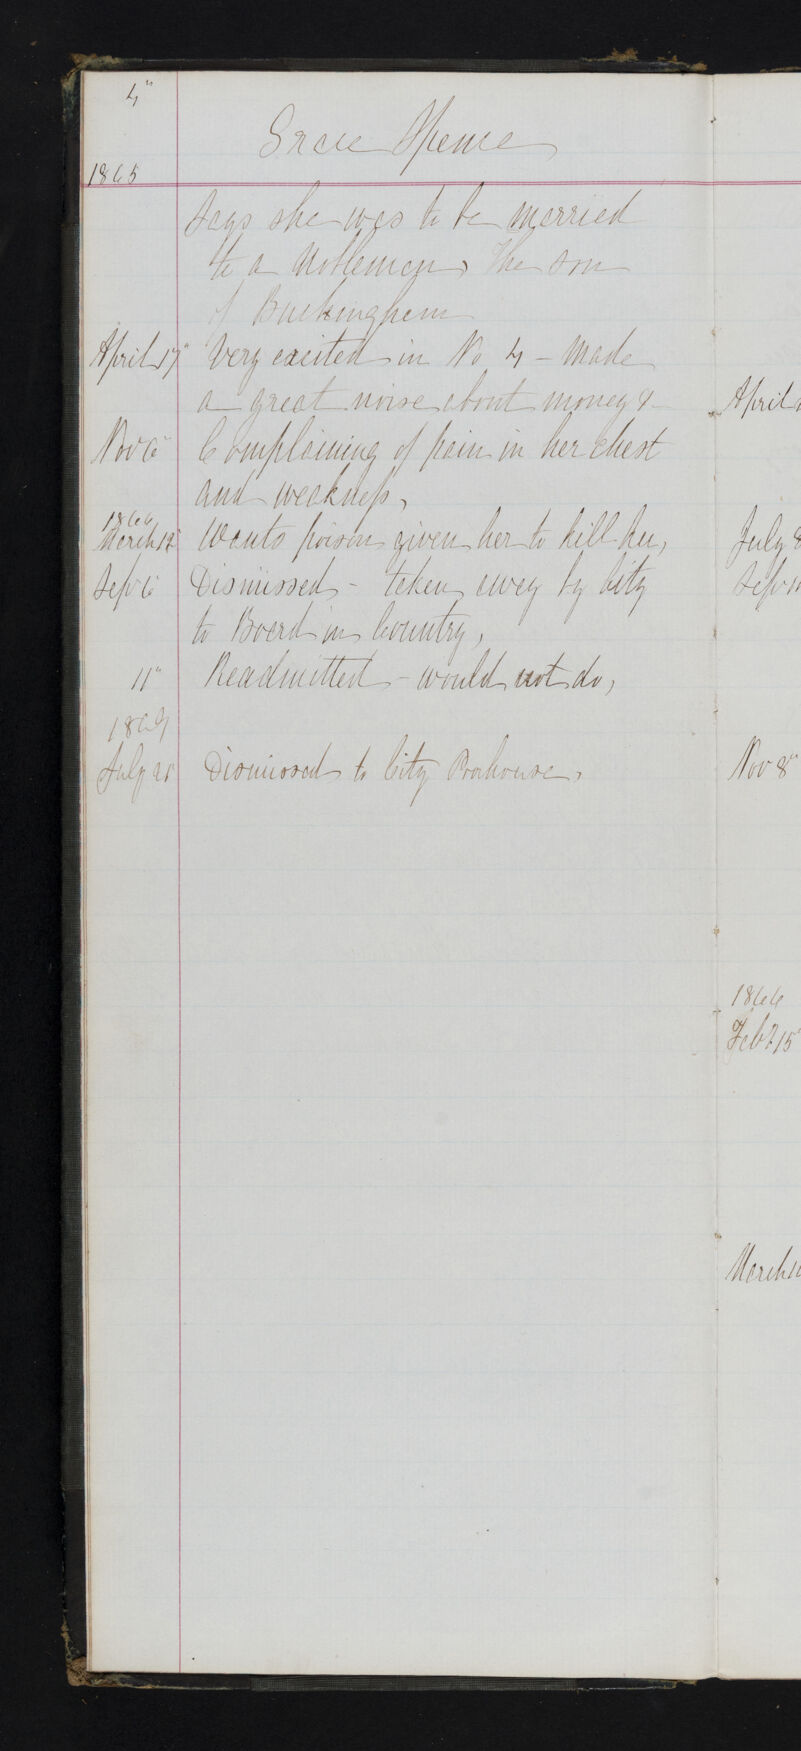 4"
Grace Spence
1865
Says she was to be married
to a Nobleman, The son
of Buckingham
April 17" Very excited in No 4 - Made
a great noise about money &
Nov 6" Complaining of pain in her chest
and weakness,
1866
March 12" Wants poison given her to kill her,
Sep 6 Dismissed - taken away by City
to Board in Country,
11" Readmitted - would not do,
July 25 Dismissed to City Poorhouse,
April
July 8
Sep
Nov 8"
1866
Feb 15"
March